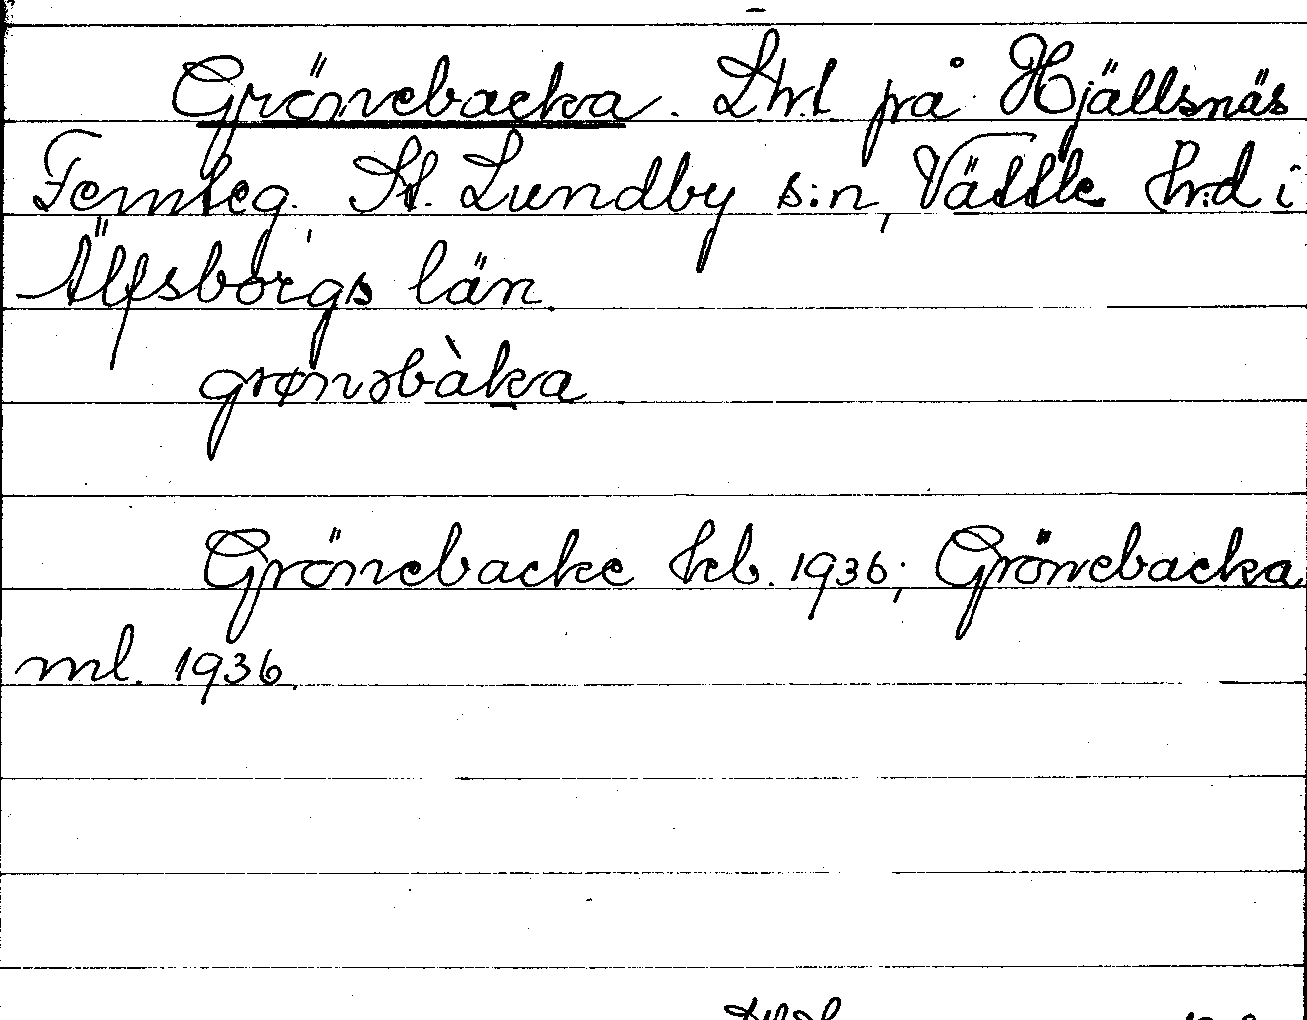 Grönebacka. Lht på Hjällsnäs
Femteg. St. Lundby s:n, Vättle hrd i
Älfsborgs län.
grønəbàka
Grönebacke kb. 1936; Grönebacka
ml. 1936.